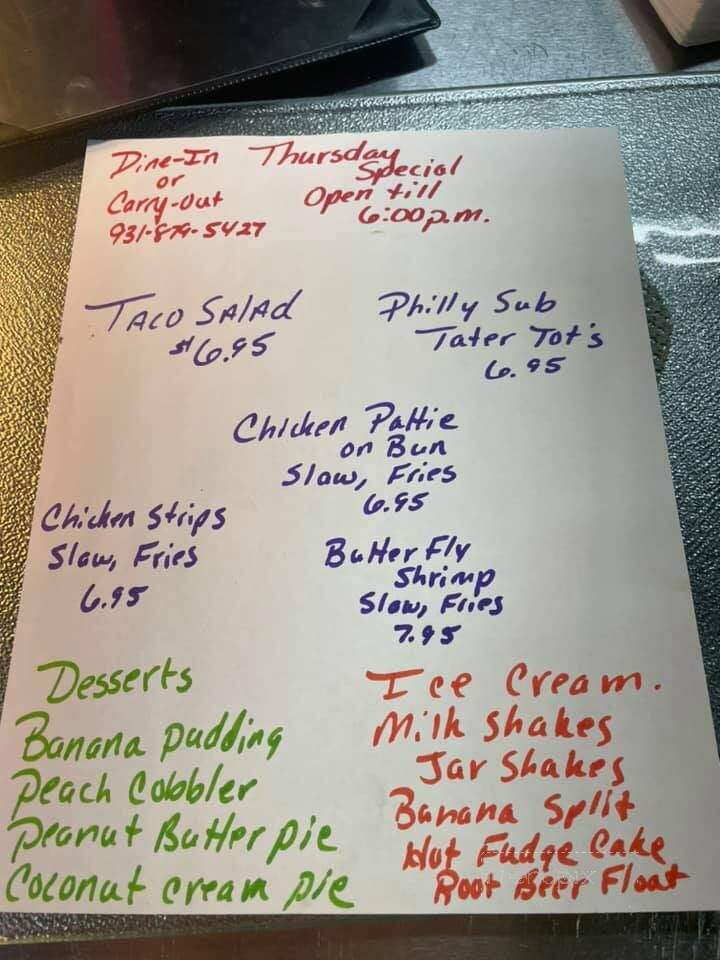 Dine-In
or
Carry-Out
931-879-5427
Thursday
Special
Open till
6:00p.m.
Taco Salad
$6.95
Philly Sub
Tater Tot's
6.95
Chicken Pattie
on Bun
Slaw, Fries
6.95
Chicken Strips
Slaw, Fries
6.95
Butterfly
Shrimp
Slaw, Fries
7.95
Desserts
Banana pudding
Peach Cobbler
Peanut Butter pie
Coconut cream pie
Ice Cream.
Milk shakes
Jar Shakes
Banana Split
Hot Fudge Cake
Root Beer Float